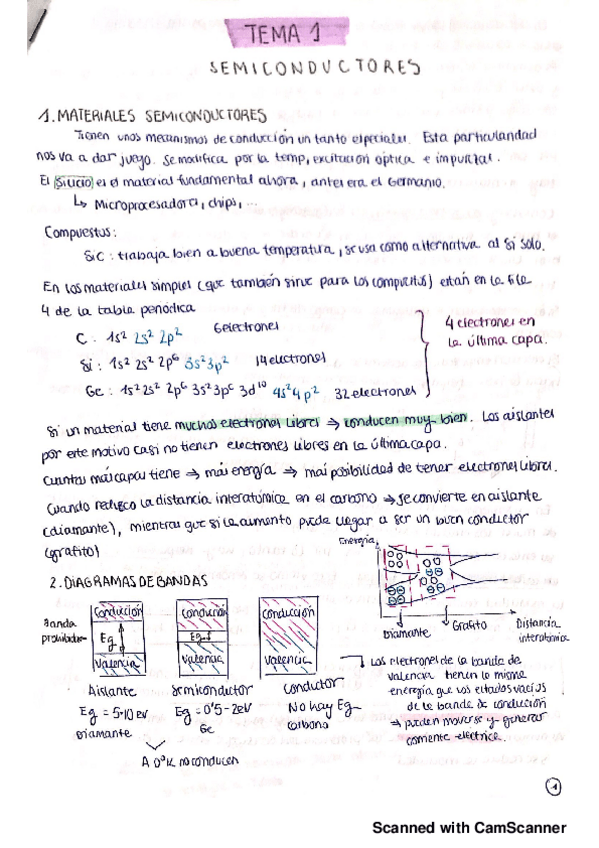 TEMA 1
SEMICONDUCTORES
1. MATERIALES SEMICONDUCTORES
Tienen unos mecanismos de conducción un tanto especiales. Esta particularidad
nos va a dar juego. Se modifica por la temp, excitación óptica e impurezas.
El Silicio es el material fundamental ahora, antes era el Germanio.
↳ Microprocesadora, chips, ...
Compuestos:
SiC: trabaja bien a buena temperatura, se usa como alternativa al Si solo.
En los materiales simples (que también sirve para los compuestos) están en la fila
4 de la tabla periódica
C: 1s² 2s² 2p² 6 electrones
Si: 1s² 2s² 2p⁶ 3s² 3p² 14 electrones
Ge: 1s² 2s² 2p⁶ 3s² 3p⁶ 3d¹⁰ 4s² 4p² 32 electrones
4 electrones en
la última capa.
Si un material tiene muchos electrones libres ⇒ conducen muy bien. Los aislantes
por este motivo casi no tienen electrones libres en la última capa.
Cuantas más capas tiene → más energía → más posibilidad de tener electrones libres.
Cuando reduzco la distancia interatómica en el carbono → se convierte en aislante
(diamante), mientras que si la aumento puede llegar a ser un buen conductor
(grafito)
Energía
Diamante
Grafito
Distancia
interatómica
2. DIAGRAMAS DE BANDAS
Banda
prohibida
Conducción
Eg
Valencia
Aislante
Eg = 5-10 eV
Diamante
Conducción
Eg
Valencia
Semiconductor
Eg = 0'5 - 2eV
Ge
A 0°K no conducen
Conducción
Valencia
Conductor
No hay Eg
Carbono
Los electrones de la banda de
valencia tienen la misma
energía que los estados vacíos
de la banda de conducción
pueden moverse y generar
corriente eléctrica.
1
Scanned with CamScanner